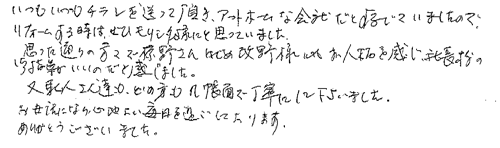 いつもいつもチラシを送って頂き、アットホームな会社だと信じていましたので、
リフォームする時は、ぜひモリシタ様にと思っていました。
思った通りの方々で 野さんはじめ牧野様 お人柄を感じ、社長さんの
ご指導がいいのだと感じました。
又職人さん達も、どの方も几帳面で丁寧にして下さいました。
お世話になり心地よい毎日を過ごしております。
ありがとうございました。